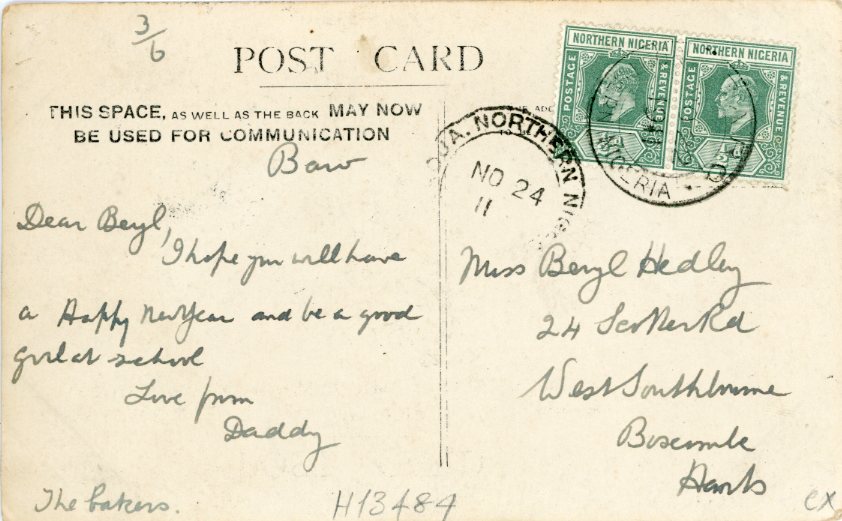 3/6
POST CARD
THIS SPACE, AS WELL AS THE BACK MAY NOW
BE USED FOR COMMUNICATION
Dear Beryl,
I hope you will have
a Happy New Year and be a good
girl at school
Love from
Daddy
The bakers.
H13484
NORTHERN NIGERIA
POSTAGE & REVENUE
NORTHERN NIGERIA
POSTAGE & REVENUE
NORTHERN
NO 24
11
NIGERIA
Miss Beryl Hedley
24 Rd
West Southbourne
Boscombe
Hants
CX